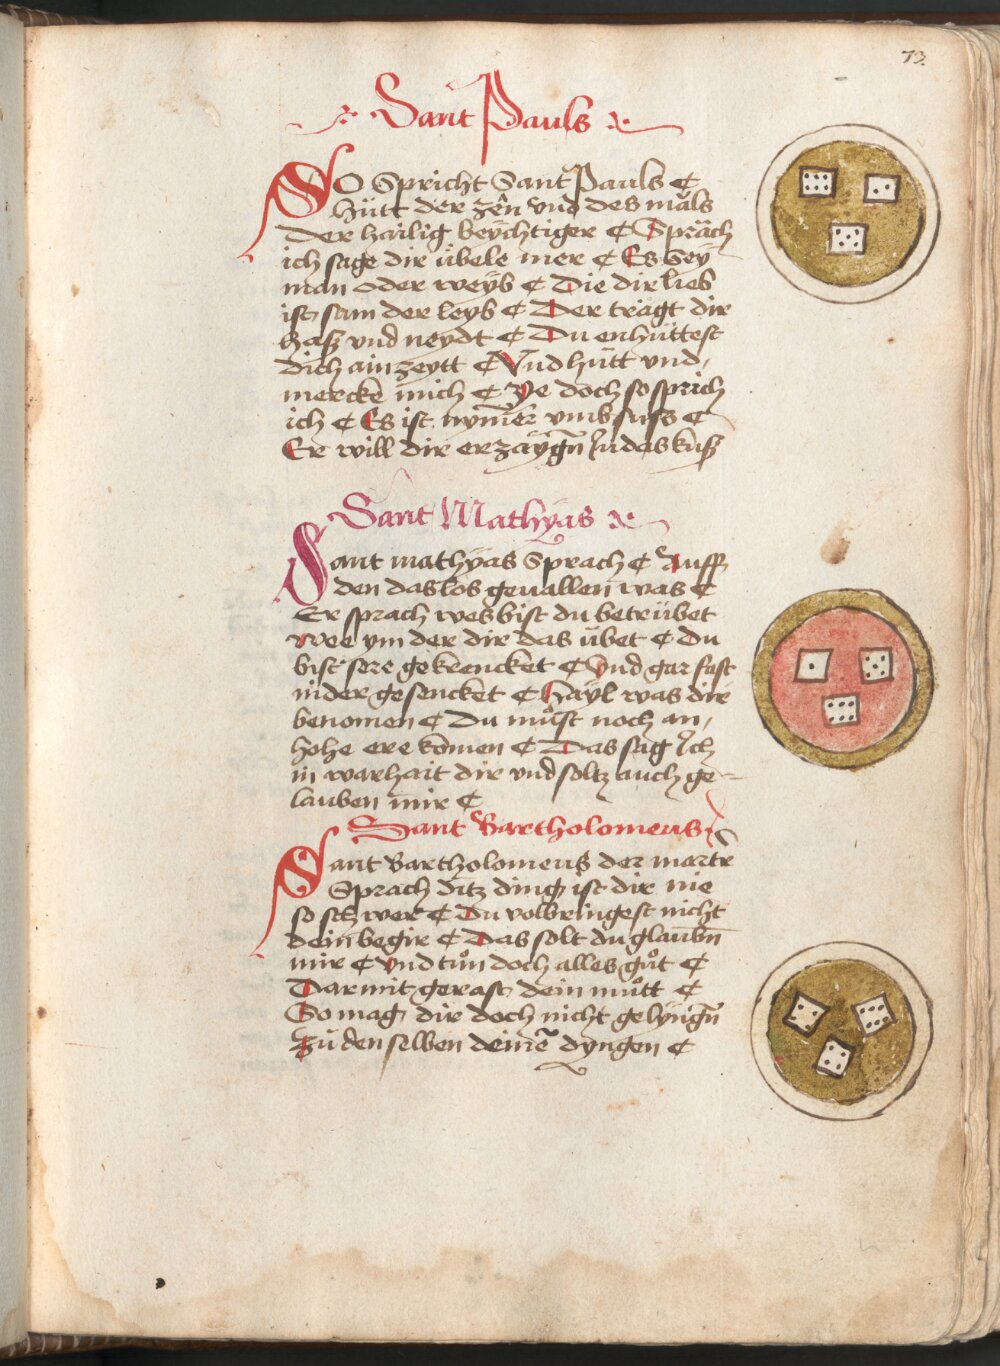 73.
Sant Pauls
SO Spricht Sant Pauls ¢
hütt der zën vnd des måls
Der hailig beychtiger ¢ Spräch
ich sage dir übele mer ¢ Es sey
man oder weyb ¢ Die dir lieb
ist sam der leyb ¢ Der trägt dir
hasz vnd neydt ¢ Du enhüttest
dich ain zeytt ¢ Vnd hütt vnd,
mercke mich ¢ Ye doch so sprich
ich ¢ Es ist nym̄er vmb suss ¢
Er will dir erzaygn̄ Judas kusz
Sant Mathyas
Sant mathyas Sprach ¢ Auff
den das los geuallen was ¢
Er sprach wes bist du betrübet
wee ym der dir das übet ¢ Du
bist sere gekrencket ¢ Vnd gar fast
nider gesencket ¢ Hayl was dir
benomen ¢ Du můst noch an,
hohe ere komen ¢ Das sag Ich
in warhait dir vnd soltz auch ge-
lauben mir ¢
Sant Bartholomeus
Sant Bartholomeus der martr̄
Sprach ditz ding ist dir nie
so schwer ¢ Du volbringest nicht
dein begir ¢ Das solt du glaubn̄
mir ¢ Vnd tůn doch alles gůt ¢
Darmit gerast dein můtt ¢
So mag dir doch nicht gelyngn̄
Zů den selben deinē dyngen ¢